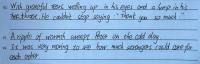 o With grateful tears welling up in his eyes and a lump in his
throat. He couldn't stop saying "Thank you so much."
o A ripple of warmth swept their on the cold day
o It was very moving to see how much strangers could care for
each other